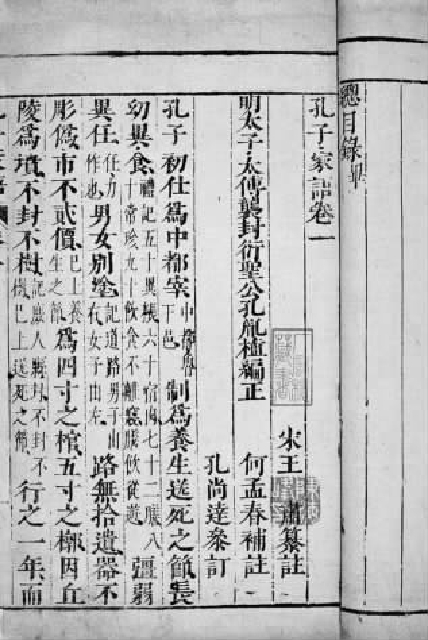 總目錄畢
孔子家語卷一
宋王 肅纂註
明太子太傅襲封衍聖公孔胤植編正 何孟春補註
孔尚達叅訂
孔子初仕爲中都宰中都魯下邑制爲養生送死之節長
幼異食禮記五十異粻六十宿肉七十二膳八十常珍九十飲食不離寢膳飲從遊彊弱
異任任力作也男女別塗記道路男子由右女子由左路無拾遺器不
彫僞市不貳價已上養生之節爲四寸之棺五寸之槨因丘
陵爲墳不封不樹記庶人縣封不封不樹已上送死之節行之一年而